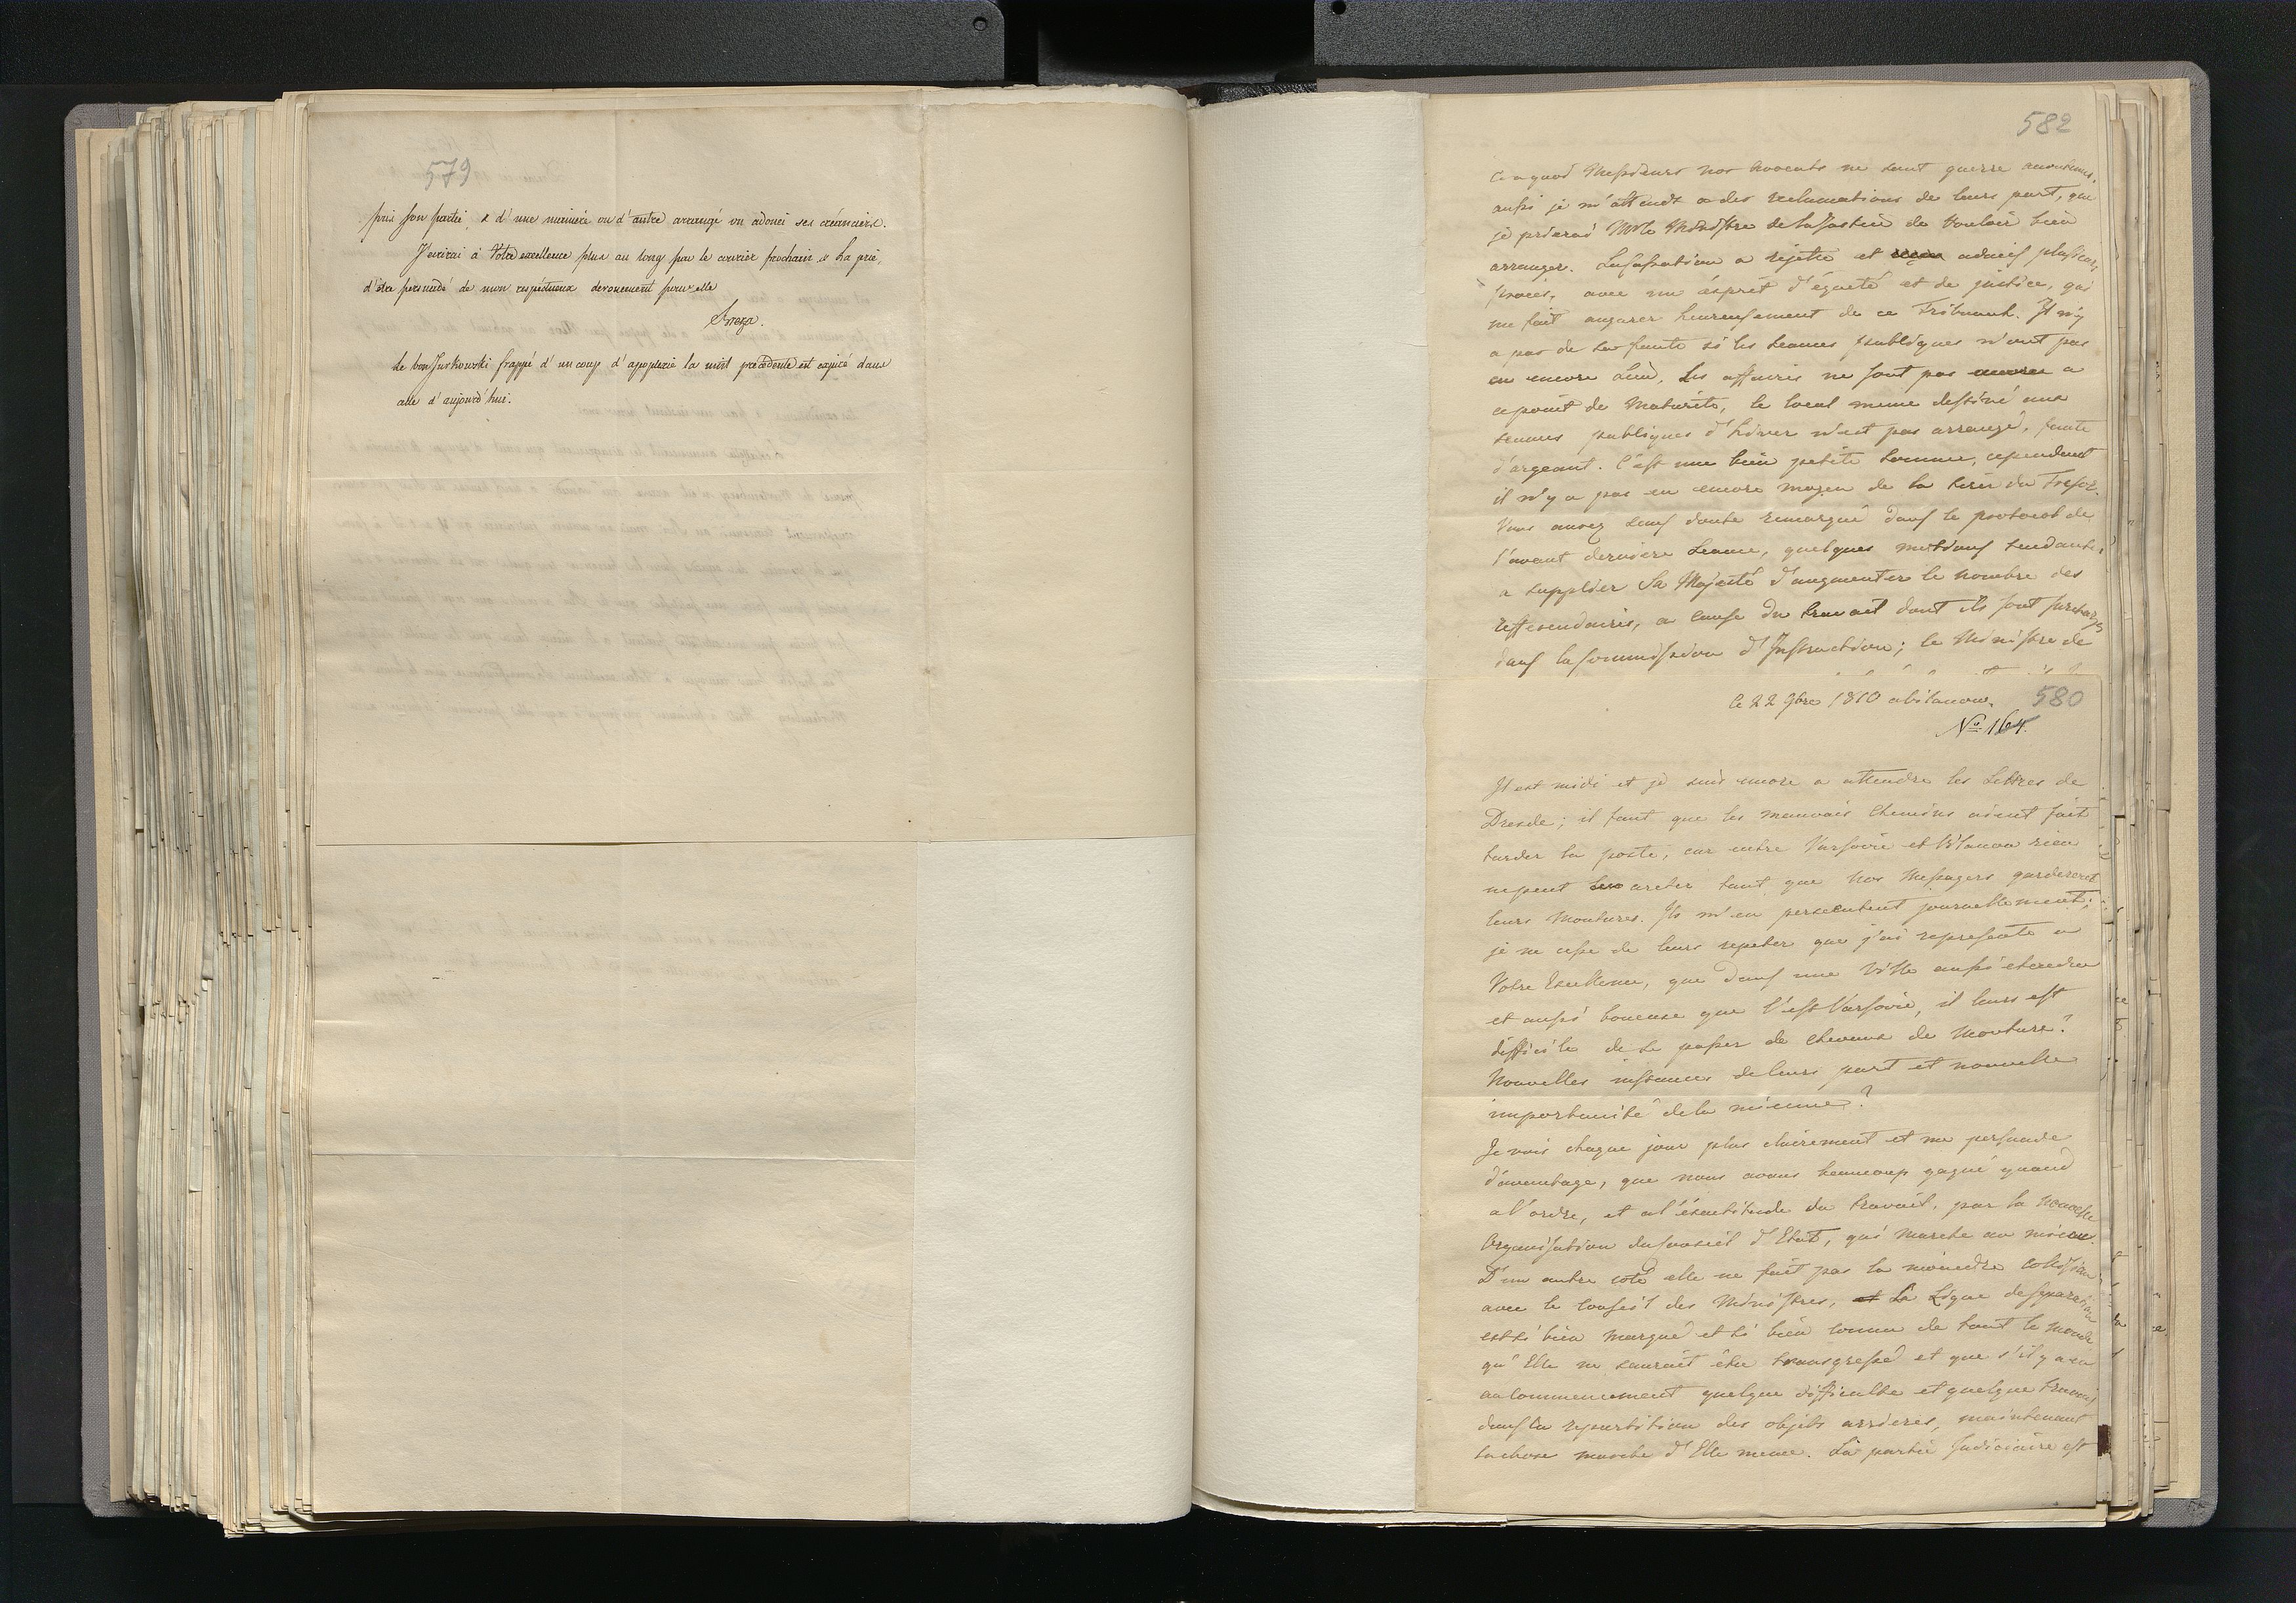 579
pris son partie, & d'une manière ou d'autre arrangé ou adouci ses créanciers.
J'écrirai à Votre excellence plus au long par le courrier prochain & La prie,
d'être persuadé de mon respectueux devouement pour elle
Breza.
Le bon Juskowski frappé d'un coup d'apoplexie la nuit précédente est expiré dans
celle d'aujourd'hui.
582
Ce a quoi Messieurs nos Avocats ne sont guerre accoutumés,
aussi je m'attends a des reclamations de leurs part, que
je prierai Mr le Ministre de la Justice de vouloir bien
arranger. La Cassation a rejetté et admis plusieurs
procés, avec un ésprit d'équeté et de justice, qui
me fait augurer heureusement de ce Tribunal. Il n'y
a pas de sa faute si les seances publiques n'ont pas
eu encore Lieu, Les affaires ne sont pas encore a
ce point de Maturité, le local meme destiné aux
seances publiques d'hiver n'est pas arrangé, faute
d'argeant. C'est une bien petite somme, cependant
il n'y a pas eu encore moyen de la tirer du Tresor.
Vous aurez sans doute remarqué dans le protocol de
l'avant derniere seance, quelques motions tendantes
a supplier Sa Majesté d'augmenter le nombre des
refferendaires, a cause du travail dont ils sont surchargés
dans la Commission d'Instruction; le Ministre de
580
le 22 9bre 1810 a Vilanow.
No. 164.
Il est midi et je suis encore a attendre les Lettres de
Dresde; il faut que les mauvais Chemins aient fait
tarder la poste, car entre Varsovie et Vilanow rien
ne peut les areter tant que nos Messagers garderont
leurs Montures. Ils m'en persecutent journellement;
je ne cesse de leurs repeter que j'ai representé a
Votre Excellence, que dans une Ville aussi etendue
et aussi boueuse que l'est Varsovie, il leurs est
difficile de se passer de chevaux de Monture?
Nouvelles instances de leurs part et nouvelle
importunité de la mienne?
Je vois chaque jour plus clairement et me persuade
d'avantage, que nous avons beaucoup gagné quand
a l'ordre, et a l'éxactitude du travail, par la nouvelle
Organisation du Conseil d'Etat, qui marche au mieux.
D'un autre coté elle ne fait pas la moindre collision
avec le Conseil des Ministres, La Ligne de separation
est si bien marqué et si bien connu de tout le monde
qu'Elle ne sauroit être transgressé et que s'il y a eu
au commencement quelque difficulté et quelque travail
dans la repartition des objets arrierés, maintenant
la chose marche d'Elle meme. La partie Judiciaire est